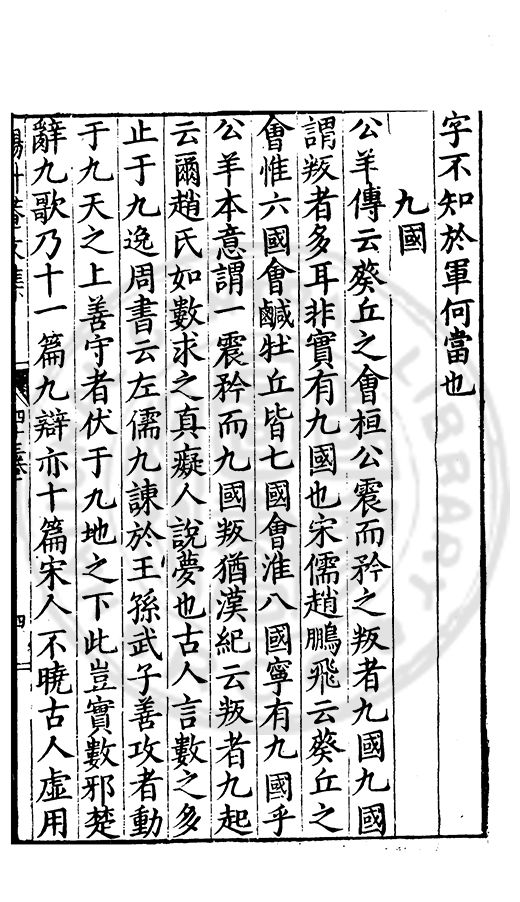 字不知於軍何當也
九國
公羊傳云葵丘之會桓公震而矜之叛者九國九國
謂叛者多耳非實有九國也宋儒趙鵬飛云葵丘之
會惟六國會鹹牡丘皆七國會淮八國寧有九國乎
公羊本意謂一震矜而九國叛猶漢紀云叛者九起
云爾趙氏如數求之真癡人說夢也古人言數之多
止于九逸周書云左儒九諫於王孫武子善攻者動
于九天之上善守者伏于九地之下此豈實數邪楚
辭九歌乃十一篇九辯亦十篇宋人不曉古人虛用
四